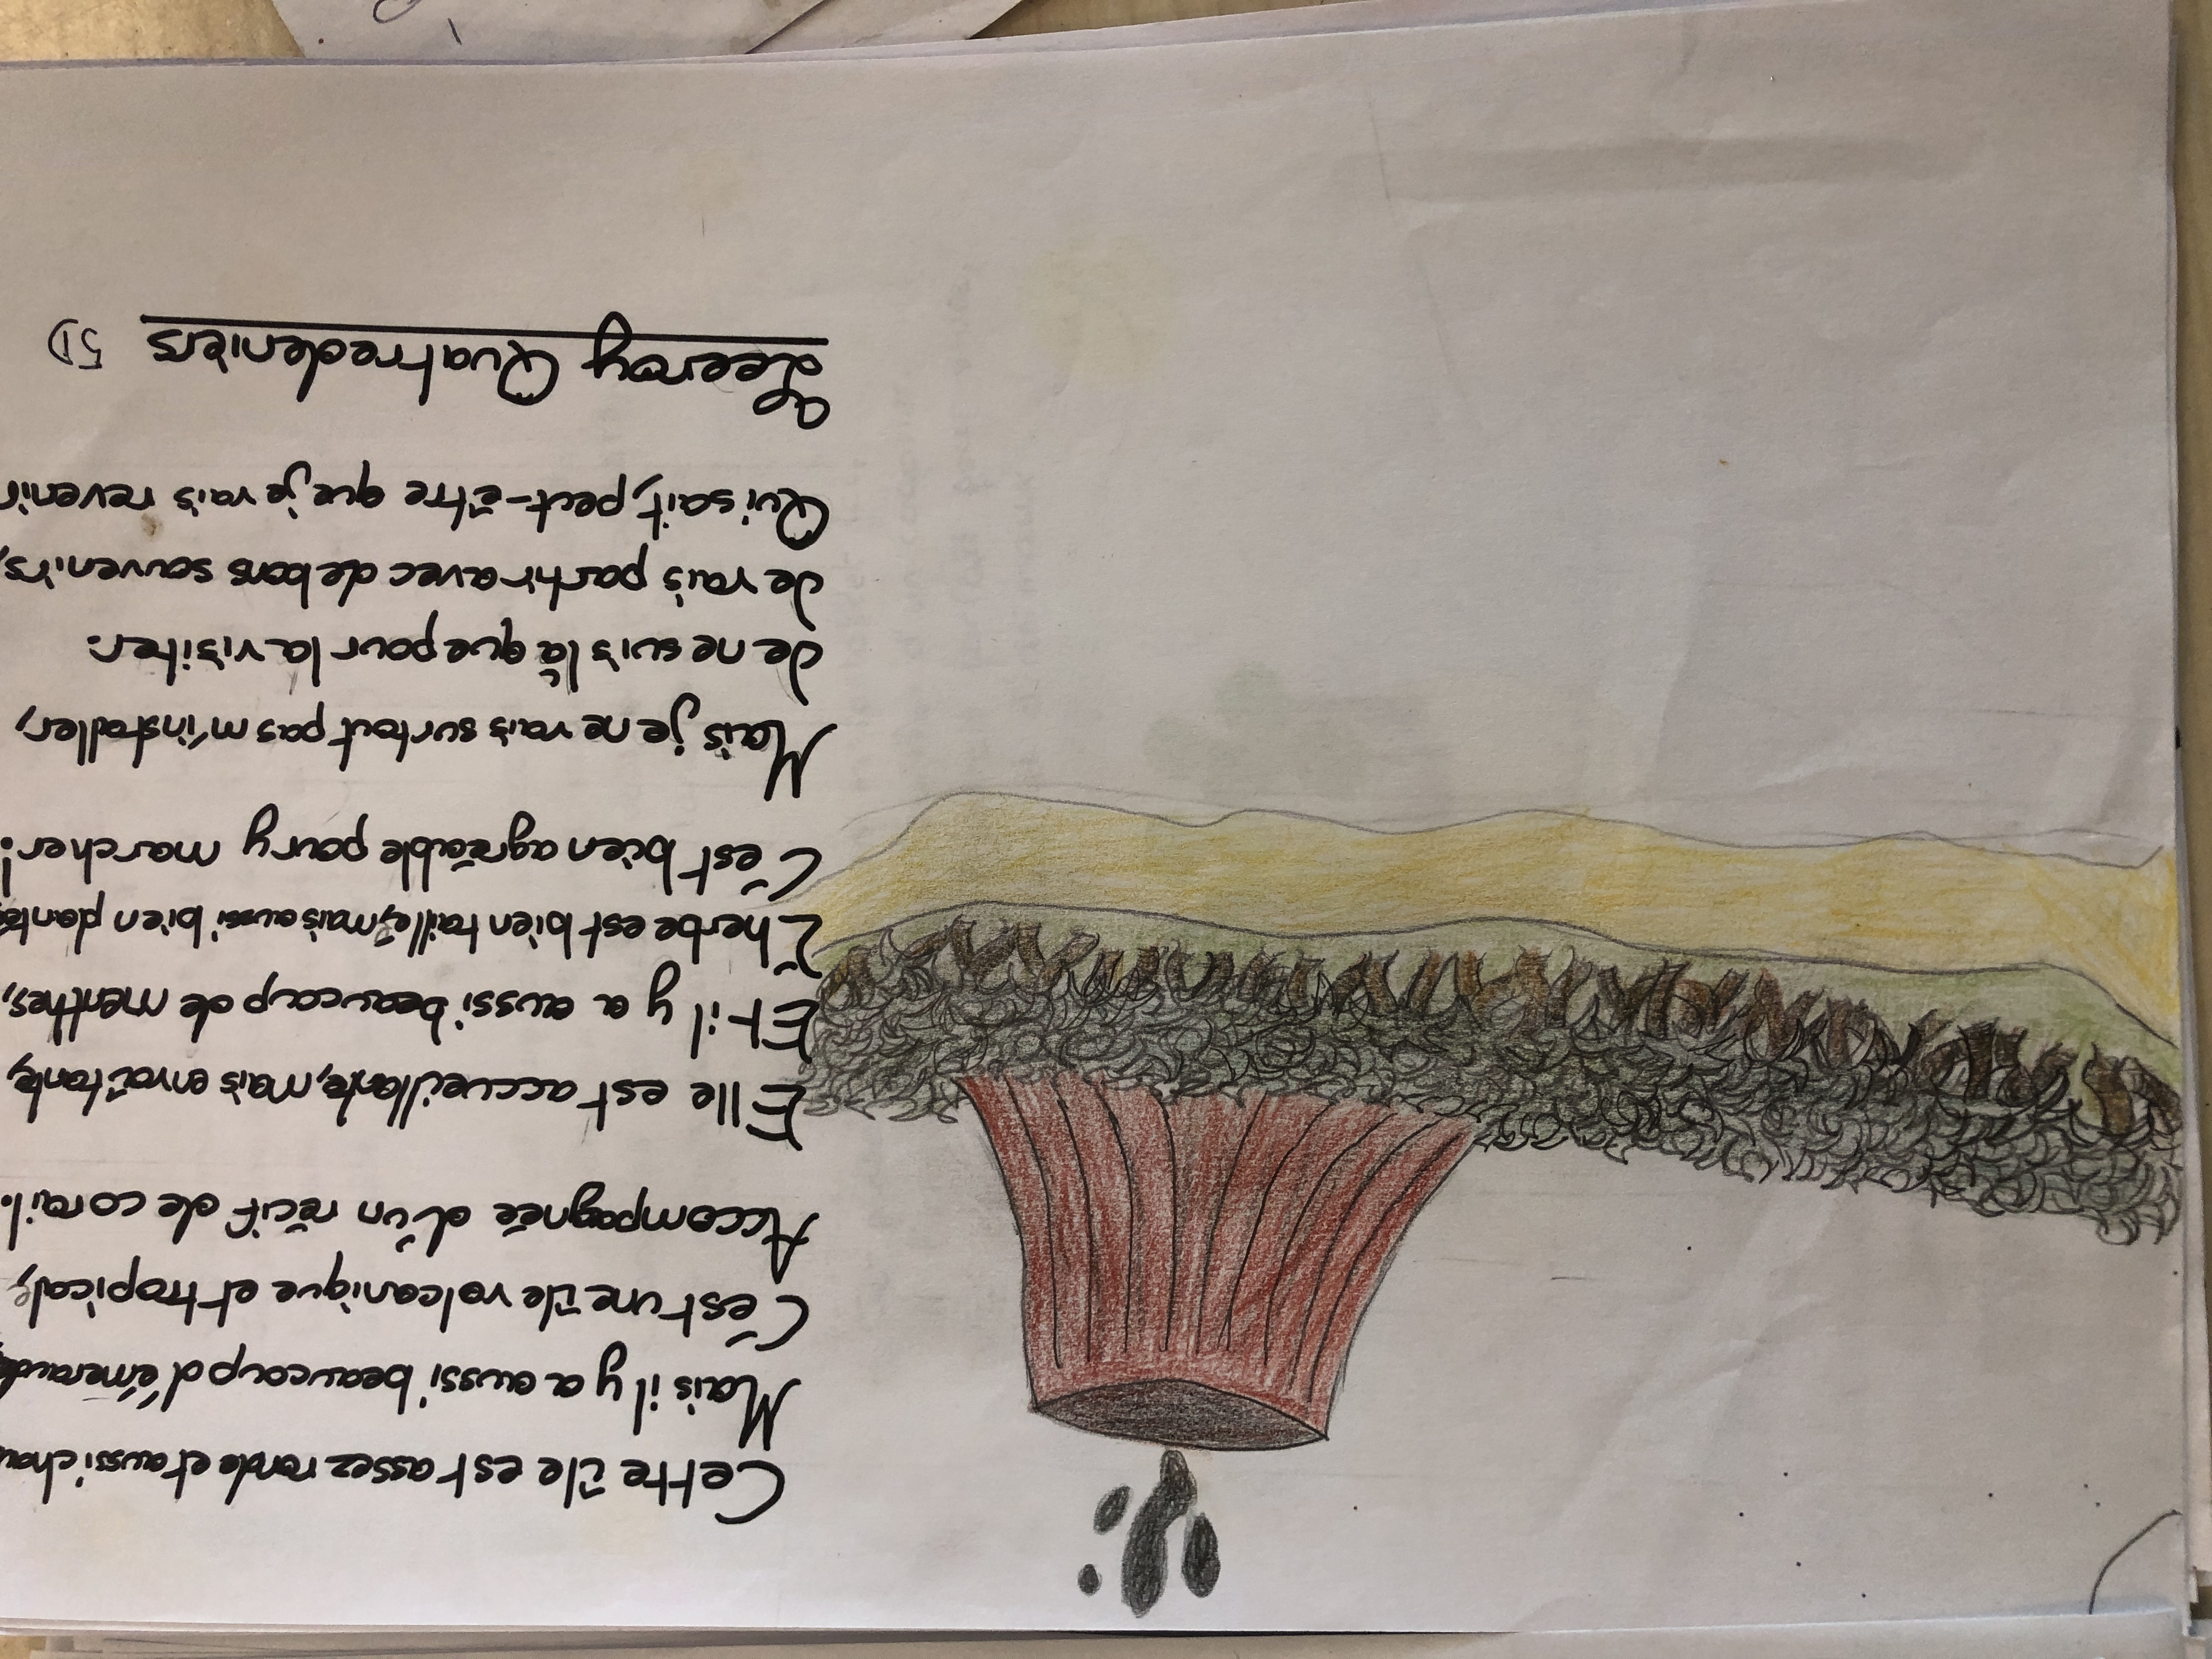 Cette île est assez ronde et aussi chau
Mais il y a aussi beaucoup d'émeraud
C'est une île volcanique et tropicale,
Accompagnée d'un récif de corail.
Elle est accueillante, mais envoûtante,
Et il y a aussi beaucoup de menthes,
L'herbe est bien taillée, mais aussi bien planté
C'est bien agréable pour y marcher!
Mais je ne vais surtout pas m'installer,
Je ne suis là que pour la visiter.
Je vais partir avec de bons souvenirs,
Qui sait, peut-être que je vais revenir
Leeroy Quatredeniers 5D